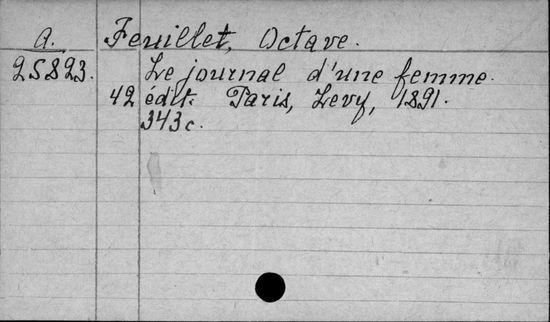 A. Feuillet, Octave.
25823. Le journal d'une femme.
42 édit. Paris, Levy, 1891.
343 c.